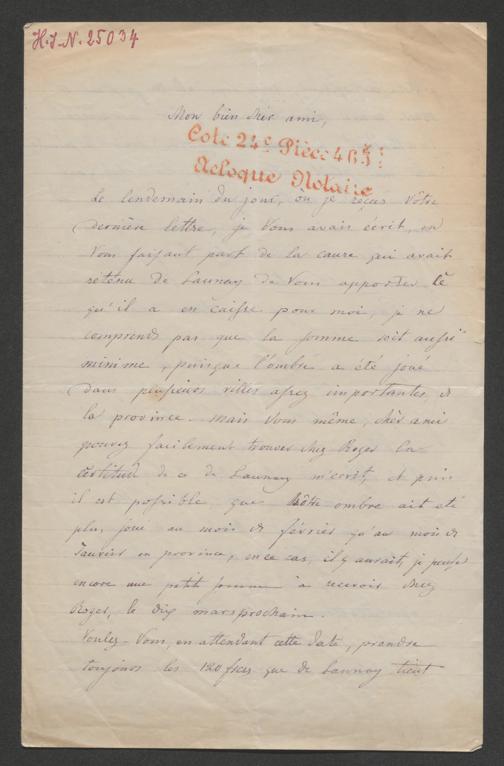 H.J-N. 25034
Mon bien cher ami,
Cote 24e Pièce 46
Acloque Notaire
Le lendemain du jour, où je reçus vôtre
dernière lettre, je vous avais écrit, en
vous faisant part de la cause qui avait
retenu de Launay de vous apporter le
qu'il a en caisse pour moi, je ne
comprends pas que la somme soit aussi
minime, puisque l'ombre a été joué
dans plusieurs villes assez importantes de
la province. mais vous même, chèr ami
pouvez facilement trouver chez Roger la
certitude de ce de Launay m'écrit, et puis
il est possible que vôtre ombre ait été
plus joué au mois de février qu'au mois de
Janvier en province, en ce cas, il y aurait, je pense
encore une petite somme à recevoir chez
Roger, le dix mars prochain.
Voulez-vous, en attendant cette date, prendre
toujours les 120 frcs que de Launay tient